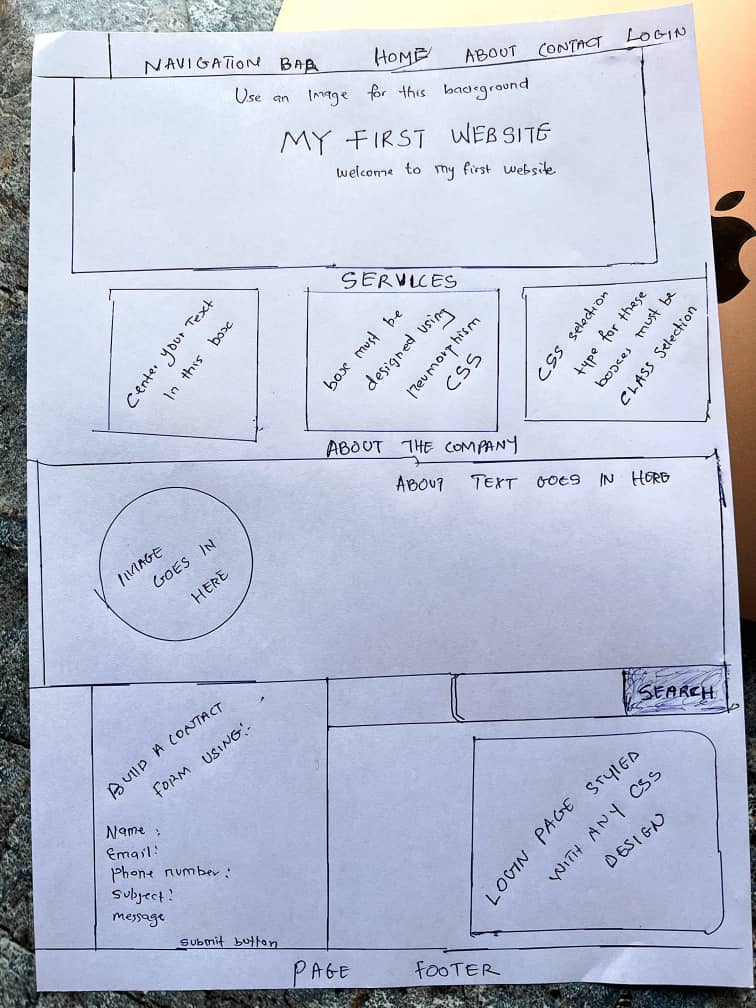 NAVIGATION BAR HOME ABOUT CONTACT LOGIN
Use an Image for this background
MY FIRST WEBSITE
welcome to my first website
SERVICES
Center your Text
In this box
box must be
designed using
neumorphism
CSS
CSS selection
type for these
boxes must be
CLASS selection
ABOUT THE COMPANY
ABOUT TEXT GOES IN HERE
IMAGE
GOES IN
HERE
SEARCH
BUILD A CONTACT
FORM USING:-
Name :
Email:
phone number:
Subject:
message
submit button
LOGIN PAGE STYLED
WITH ANY CSS
DESIGN
PAGE FOOTER